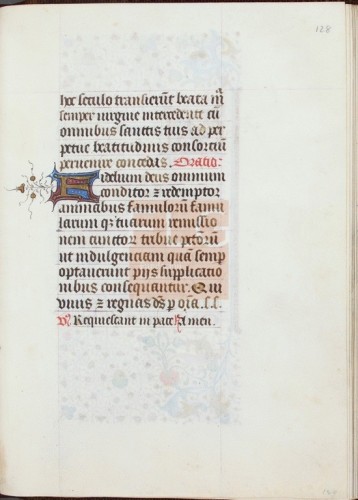 128
hoc seculo transierūt beata mͣ
semper uirgine intercedente cū
omnibus sanctis tuis ad per
petue beatitudinis consorciū
peruenire concedas. Oratio.
Fidelium deus omnium
conditor ⁊ redemptor
animabus famulorū famu
larum qꝫ tuarum remissio
nem cunctorͣ tribue pctorū
ut indulgenciam quā semp
optauerint pijs supplicatio
nibus consequantur. Qui
uiuis ⁊ regnas dꝰs p oīa .s.s.
V Requiescant in pace Amen.